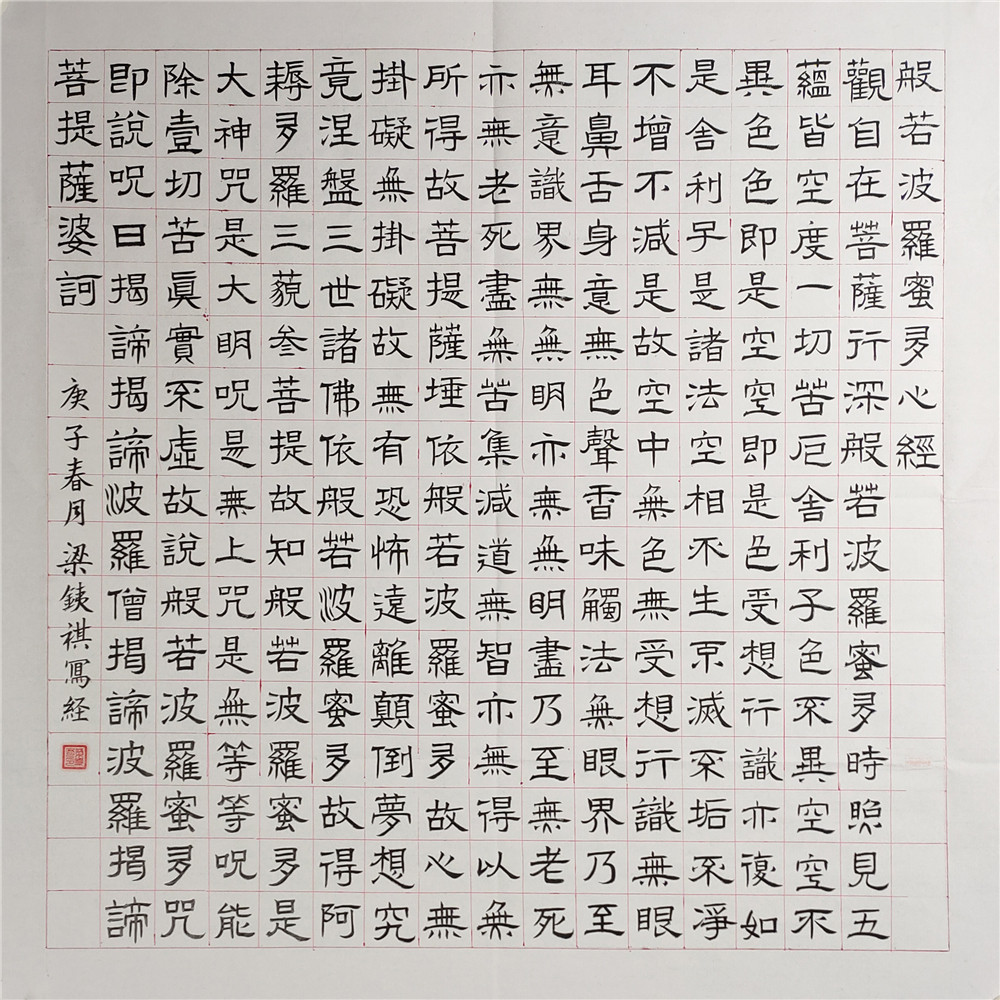 般若波羅蜜多心經
觀自在菩薩行深般若波羅蜜多時照見五
蘊皆空度一切苦厄舍利子色不異空空不
異色色即是空空即是色受想行識亦復如
是舍利子是諸法空相不生不滅不垢不淨
不增不減是故空中無色無受想行識無眼
耳鼻舌身意無色聲香味觸法無眼界乃至
無意識界無無明亦無無明盡乃至無老死
亦無老死盡無苦集減道無智亦無得以無
所得故菩提薩埵依般若波羅蜜多故心無
掛礙無掛礙故無有恐怖遠離顛倒夢想究
竟涅盤三世諸佛依般若波羅蜜多故得阿
耨多羅三藐叁菩提故知般若波羅蜜多是
大神咒是大明呪是無上咒是無等等呪能
除壹切苦真實不虛故說般若波羅蜜多咒
即說呪曰揭諦揭諦波羅僧揭諦波羅揭諦
菩提薩婆訶
庚子春月梁鉄祺寫経